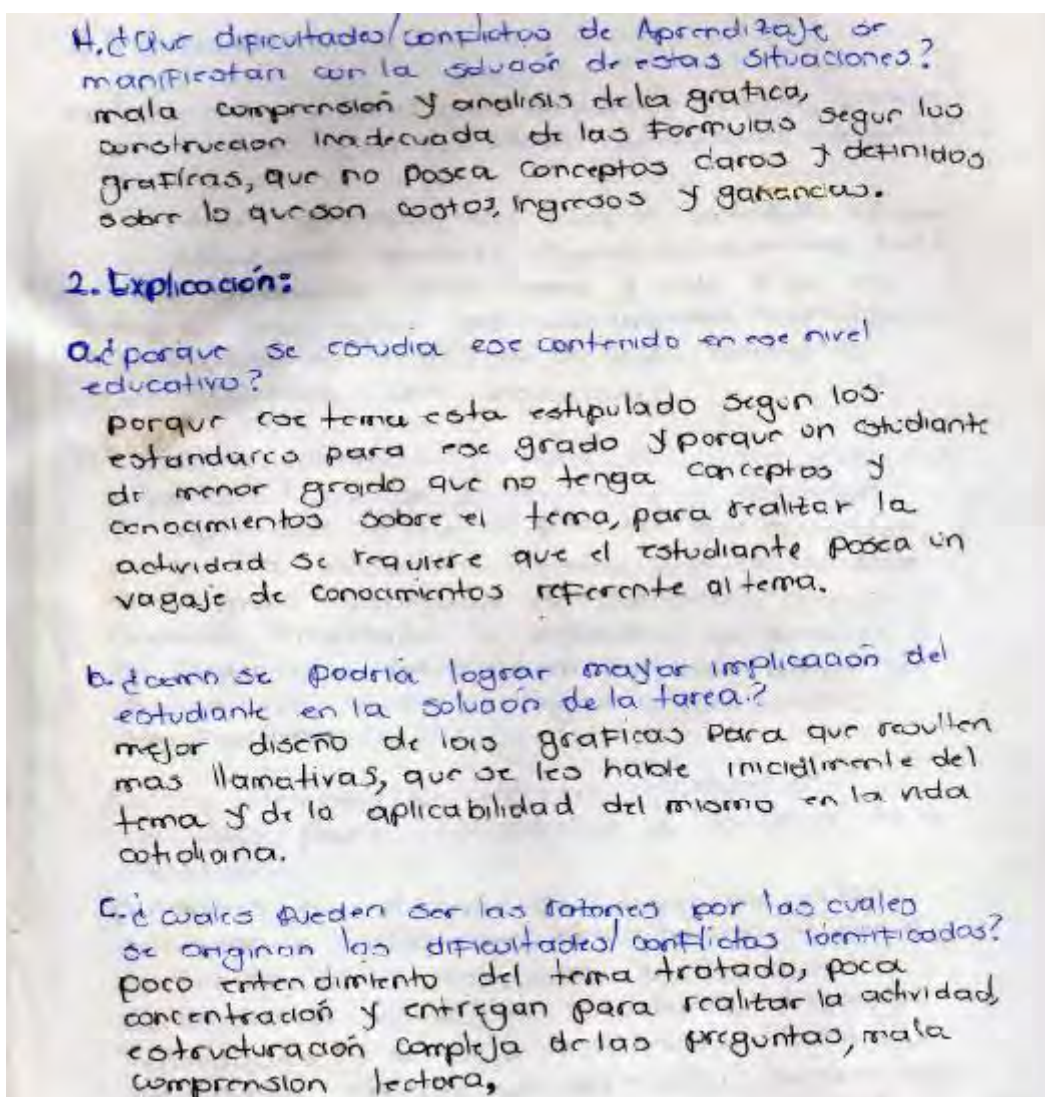 H. ¿Que dificultades/conflictos de Aprendizaje se
manifiestan con la solución de estas situaciones?
mala comprensión y analisis de la grafica,
construccion inadecuada de las formulas segun las
graficas, que no posea conceptos claros y definidos
sobre lo que son costos, ingresos y ganancias.
2. Explicación:
a. ¿porque se estudia ese contenido en ese nivel
educativo?
porque ese tema esta estipulado segun los
estandares para ese grado y porque un estudiante
de menor grado que no tenga conceptos y
conocimientos sobre el tema, para realizar la
actividad se requiere que el estudiante posea un
vagaje de conocimientos referente al tema.
b. ¿como se podria lograr mayor implicación del
estudiante en la solución de la tarea.?
mejor diseño de las graficas para que resulten
mas llamativas, que se les hable inicialmente del
tema y de la aplicabilidad del mismo en la vida
cotidiana.
C. ¿cuales pueden ser las razones por las cuales
se originan las dificultades/conflictos identificados?
poco entendimiento del tema tratado, poca
concentración y entregan para realizar la actividad,
estructuración compleja de las preguntas, mala
comprension lectora,